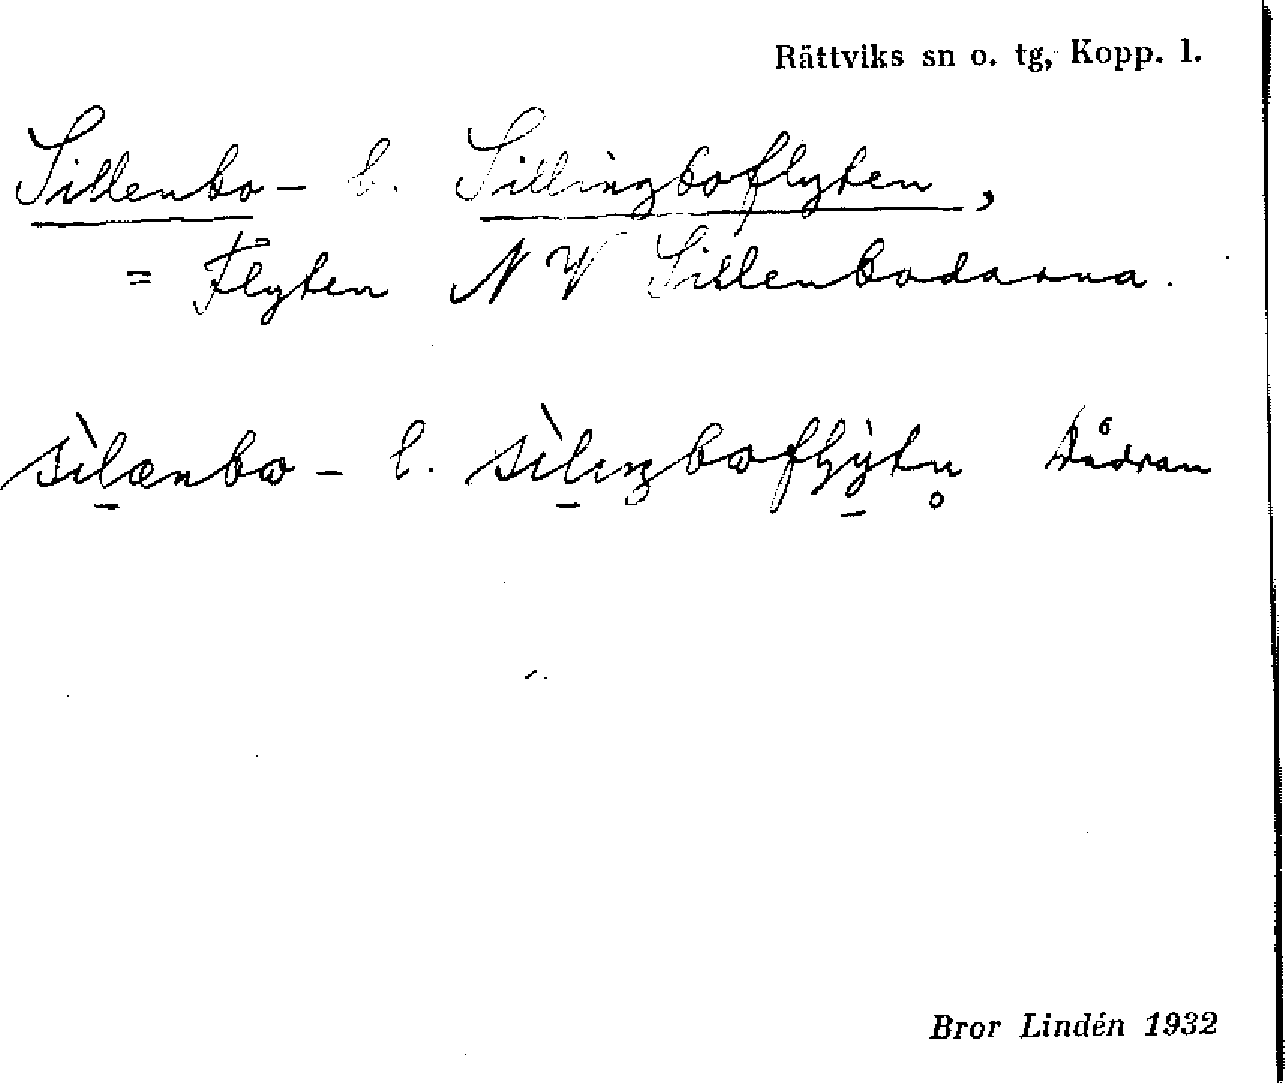 Rättviks sn o. tg, Kopp. l.
Sillenbo- l. Sillingboflyten,
= Flyten NV Sillenbodarna.
sìlænbω - l. sìliŋbωflỳtn̥ Dådran
Bror Lindén 1932